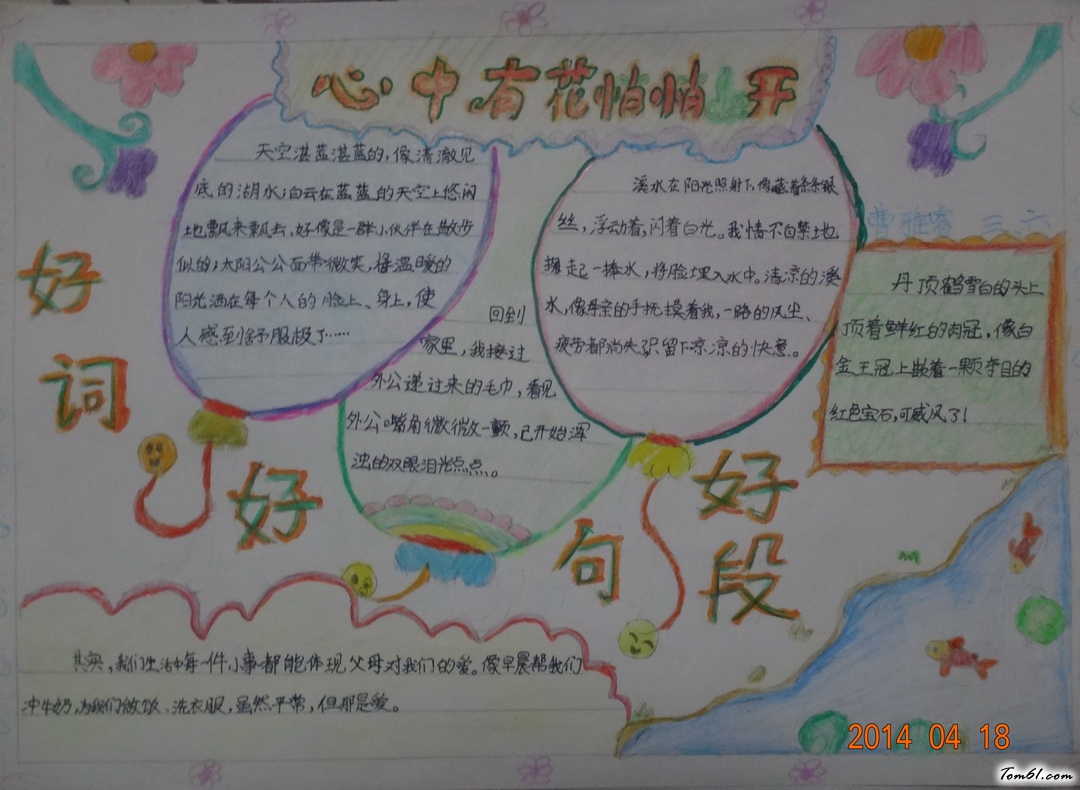 心中有花悄悄开
天空湛蓝湛蓝的，像清澈见
底的湖水；白云在蓝蓝的天空上悠闲
地飘来飘去，好像是一群小伙伴在散步
似的；太阳公公面带微笑，将温暖的
阳光洒在每个人的脸上、身上，使
人感到舒服极了……
溪水在阳光照射下，像藏着条条银
丝，浮动着，闪着白光。我情不自禁地
掬起一捧水，将脸埋入水中。清凉的溪
水，像母亲的手抚摸着我，一路的风尘、
疲劳都消失，只留下凉凉的快意。
曹雅 三、六
丹顶鹤雪白的头上
顶着鲜红的肉冠，像白
金王冠上嵌着一颗夺目的
红色宝石，可威风了！
好
词
回到
家里，我接过
外公递过来的毛巾，看见
外公嘴角微微一颤，已开始浑
浊的双眼泪光点点。
好
句
好
段
其实，我们生活中每一件小事都能体现父母对我们的爱。像早晨帮我们
冲牛奶，为我们做饭、洗衣服，虽然平常，但那是爱。
2014 04 18
Tom61.com